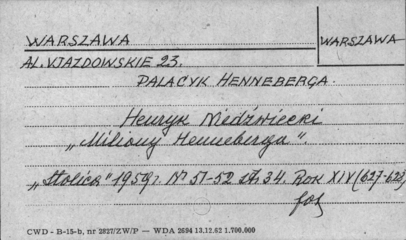 WARSZAWA
WARSZAWA
AL. UJAZDOWSKIE 23.
PALACYK HENNEBERGA.
Henryk Niedźwiecki
„Miliony Henneberga".
„Stolica" 1959r. Nº 51-52 str. 34. Rok XIV (627-628)
fot
CWD - B-15-b, nr 2827/ZW/P — WDA 2694 13.12.62 1.700.000